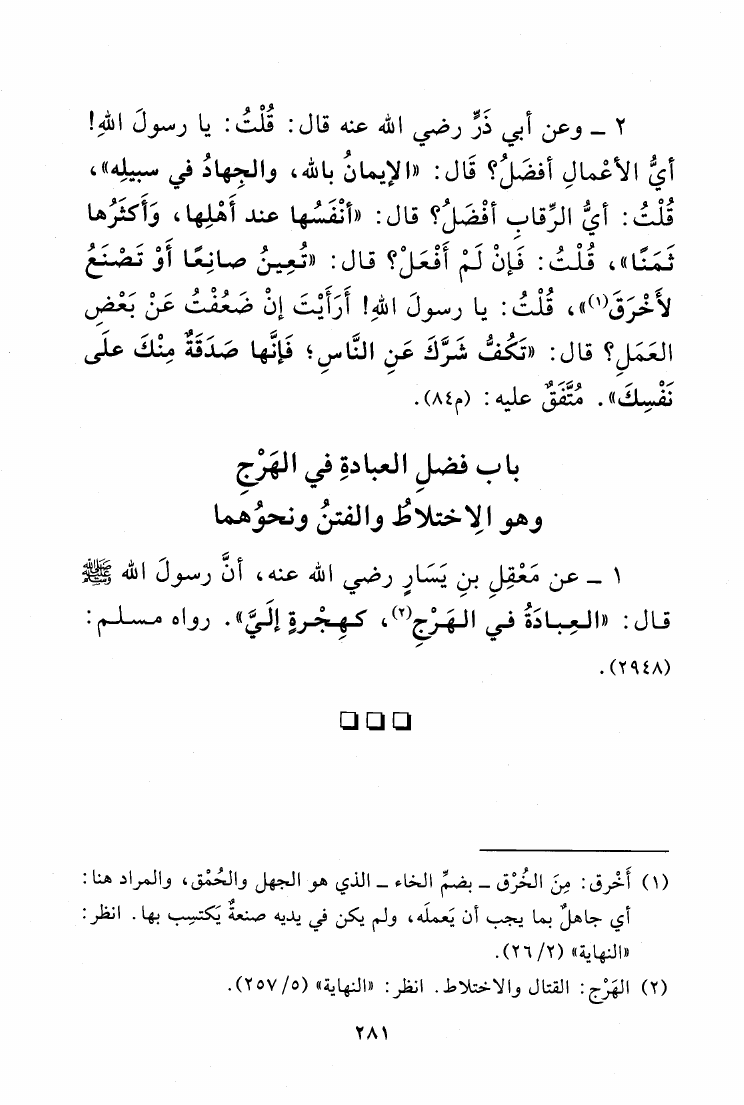 ٢ ـ وعن أبي ذَرٍّ رضي الله عنه قال: قُلْتُ: يا رسولَ اللهِ!
أيُّ الأعْمالِ أفضَلُ؟ قَال: «الإيمانُ بالله، والجِهادُ في سبيلِه»،
قُلْتُ: أيُّ الرِّقابِ أفْضَلُ؟ قال: «أنْفَسُها عند أهْلِها، وَأكثَرُها
ثَمَنًا»، قُلْتُ: فَإنْ لَمْ أفْعَلْ؟ قال: «تُعِينُ صانِعًا أوْ تَصْنَعُ
لأخْرَقَ(١)»، قُلْتُ: يا رسولَ اللهِ! أرَأيْتَ إنْ ضَعُفْتُ عَنْ بَعْضِ
العَمَلِ؟ قال: «تَكُفُّ شَرَّكَ عَنِ النَّاسِ؛ فَإنَّها صَدَقَةٌ مِنْكَ على
نَفْسِكَ». مُتَّفَقٌ عليه: (م٨٤).
باب فضلِ العبادةِ في الهَرْجِ
وهو الِاختلاطُ والفتنُ ونحوُهما
١ ـ عن مَعْقِلِ بنِ يَسَارٍ رضي الله عنه، أنَّ رسولَ الله ﷺ
قال: «العِبادَةُ في الهَرْجِ(٢)، كهِجْرةٍ إلَيَّ». رواه مسلم:
(٢٩٤٨).
□□□
(١) أَخْرق: مِنَ الخُرْق ـ بضمِّ الخاء ـ الذي هو الجهل والحُمْق، والمراد هنا:
أي جاهلٌ بما يجب أن يَعمله، ولم يكن في يديه صنعةٌ يَكتسِب بها. انظر:
«النهاية» (٢/ ٢٦).
(٢) الهَرْج: القتال والاختلاط. انظر: «النهاية» (٥/ ٢٥٧).
٢٨١